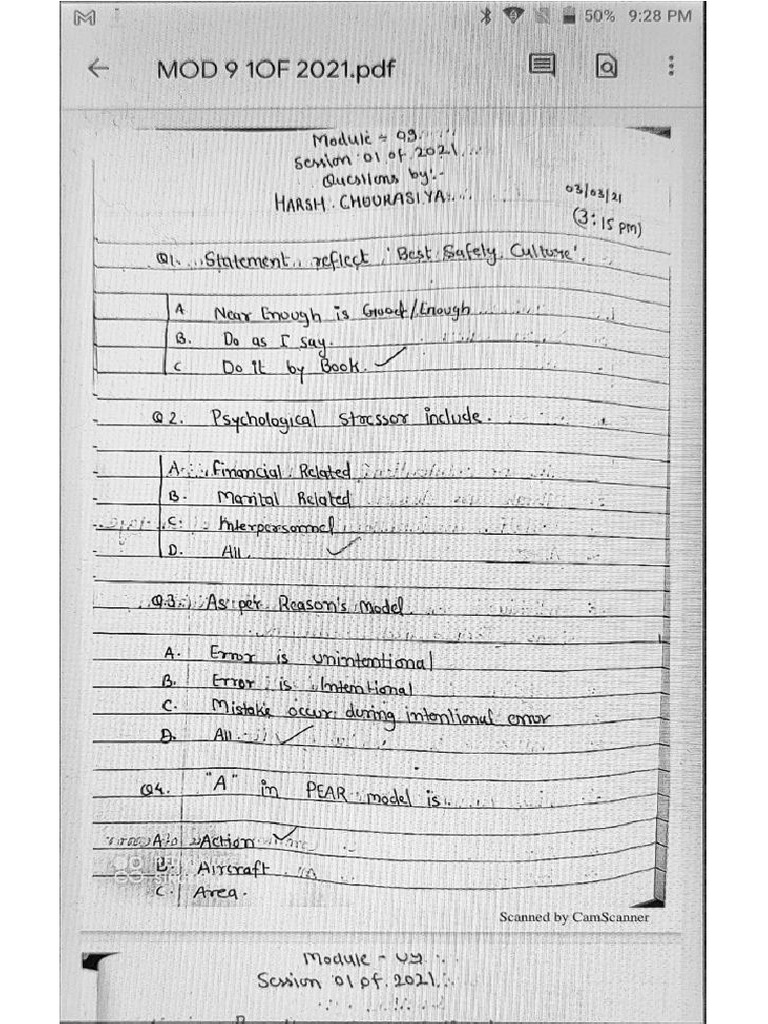 50% 9:28 PM
MOD 9 1OF 2021.pdf
Module - 09
Session 01 of 2021
Questions by:-
HARSH CHOURASIYA
03/03/21
(3:15 pm)
Q1. Statement reflect 'Best Safety Culture'.
A Near Enough is Good/Enough
B. Do as I say.
C Do it by Book. ✓
Q2. Psychological Stressor include.
A. Financial Related
B. Marital Related
C. Interpersonnel
D. All ✓
Q.3. As per Reason's Model
A. Error is unintentional
B. Error is Intentional
C. Mistake occur during intentional error
D. All ✓
Q4. "A" in PEAR model is.
A Action ✓
B Aircraft
C. Area.
Scanned by CamScanner
Module - 09
Session 01 of 2021